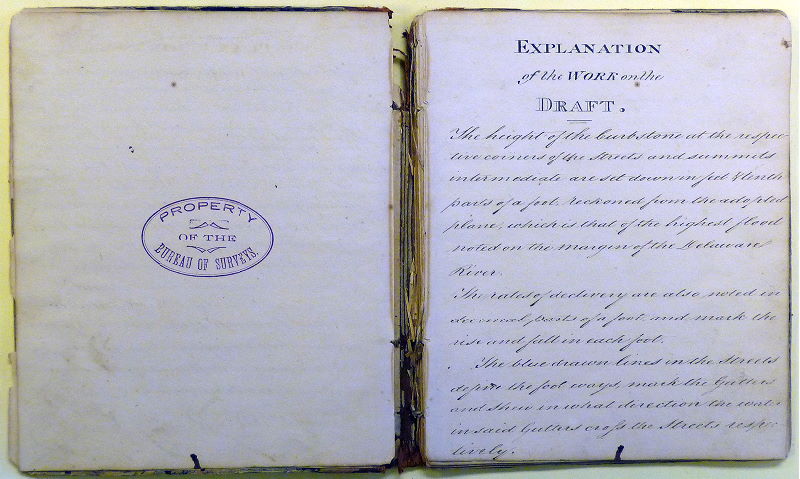 PROPERTY
OF THE
BUREAU OF SURVEYS.
EXPLANATION
of the WORK on the
DRAFT.
The height of the Curbstone at the respec-
tive corners of the Streets and summits
intermediate are set down in feet & tenth
parts of a foot, reckoned from the adopted
plane, which is that of the highest flood
noted on the margin of the Delaware
River.
The rates of declivery are also noted in
decimal parts of a foot and mark the
rise and fall in each foot.
The blue drawn lines in the Streets
define the foot ways, mark the Gutters
and shew in what direction the water
in said Gutters cross the Streets respec-
tively.